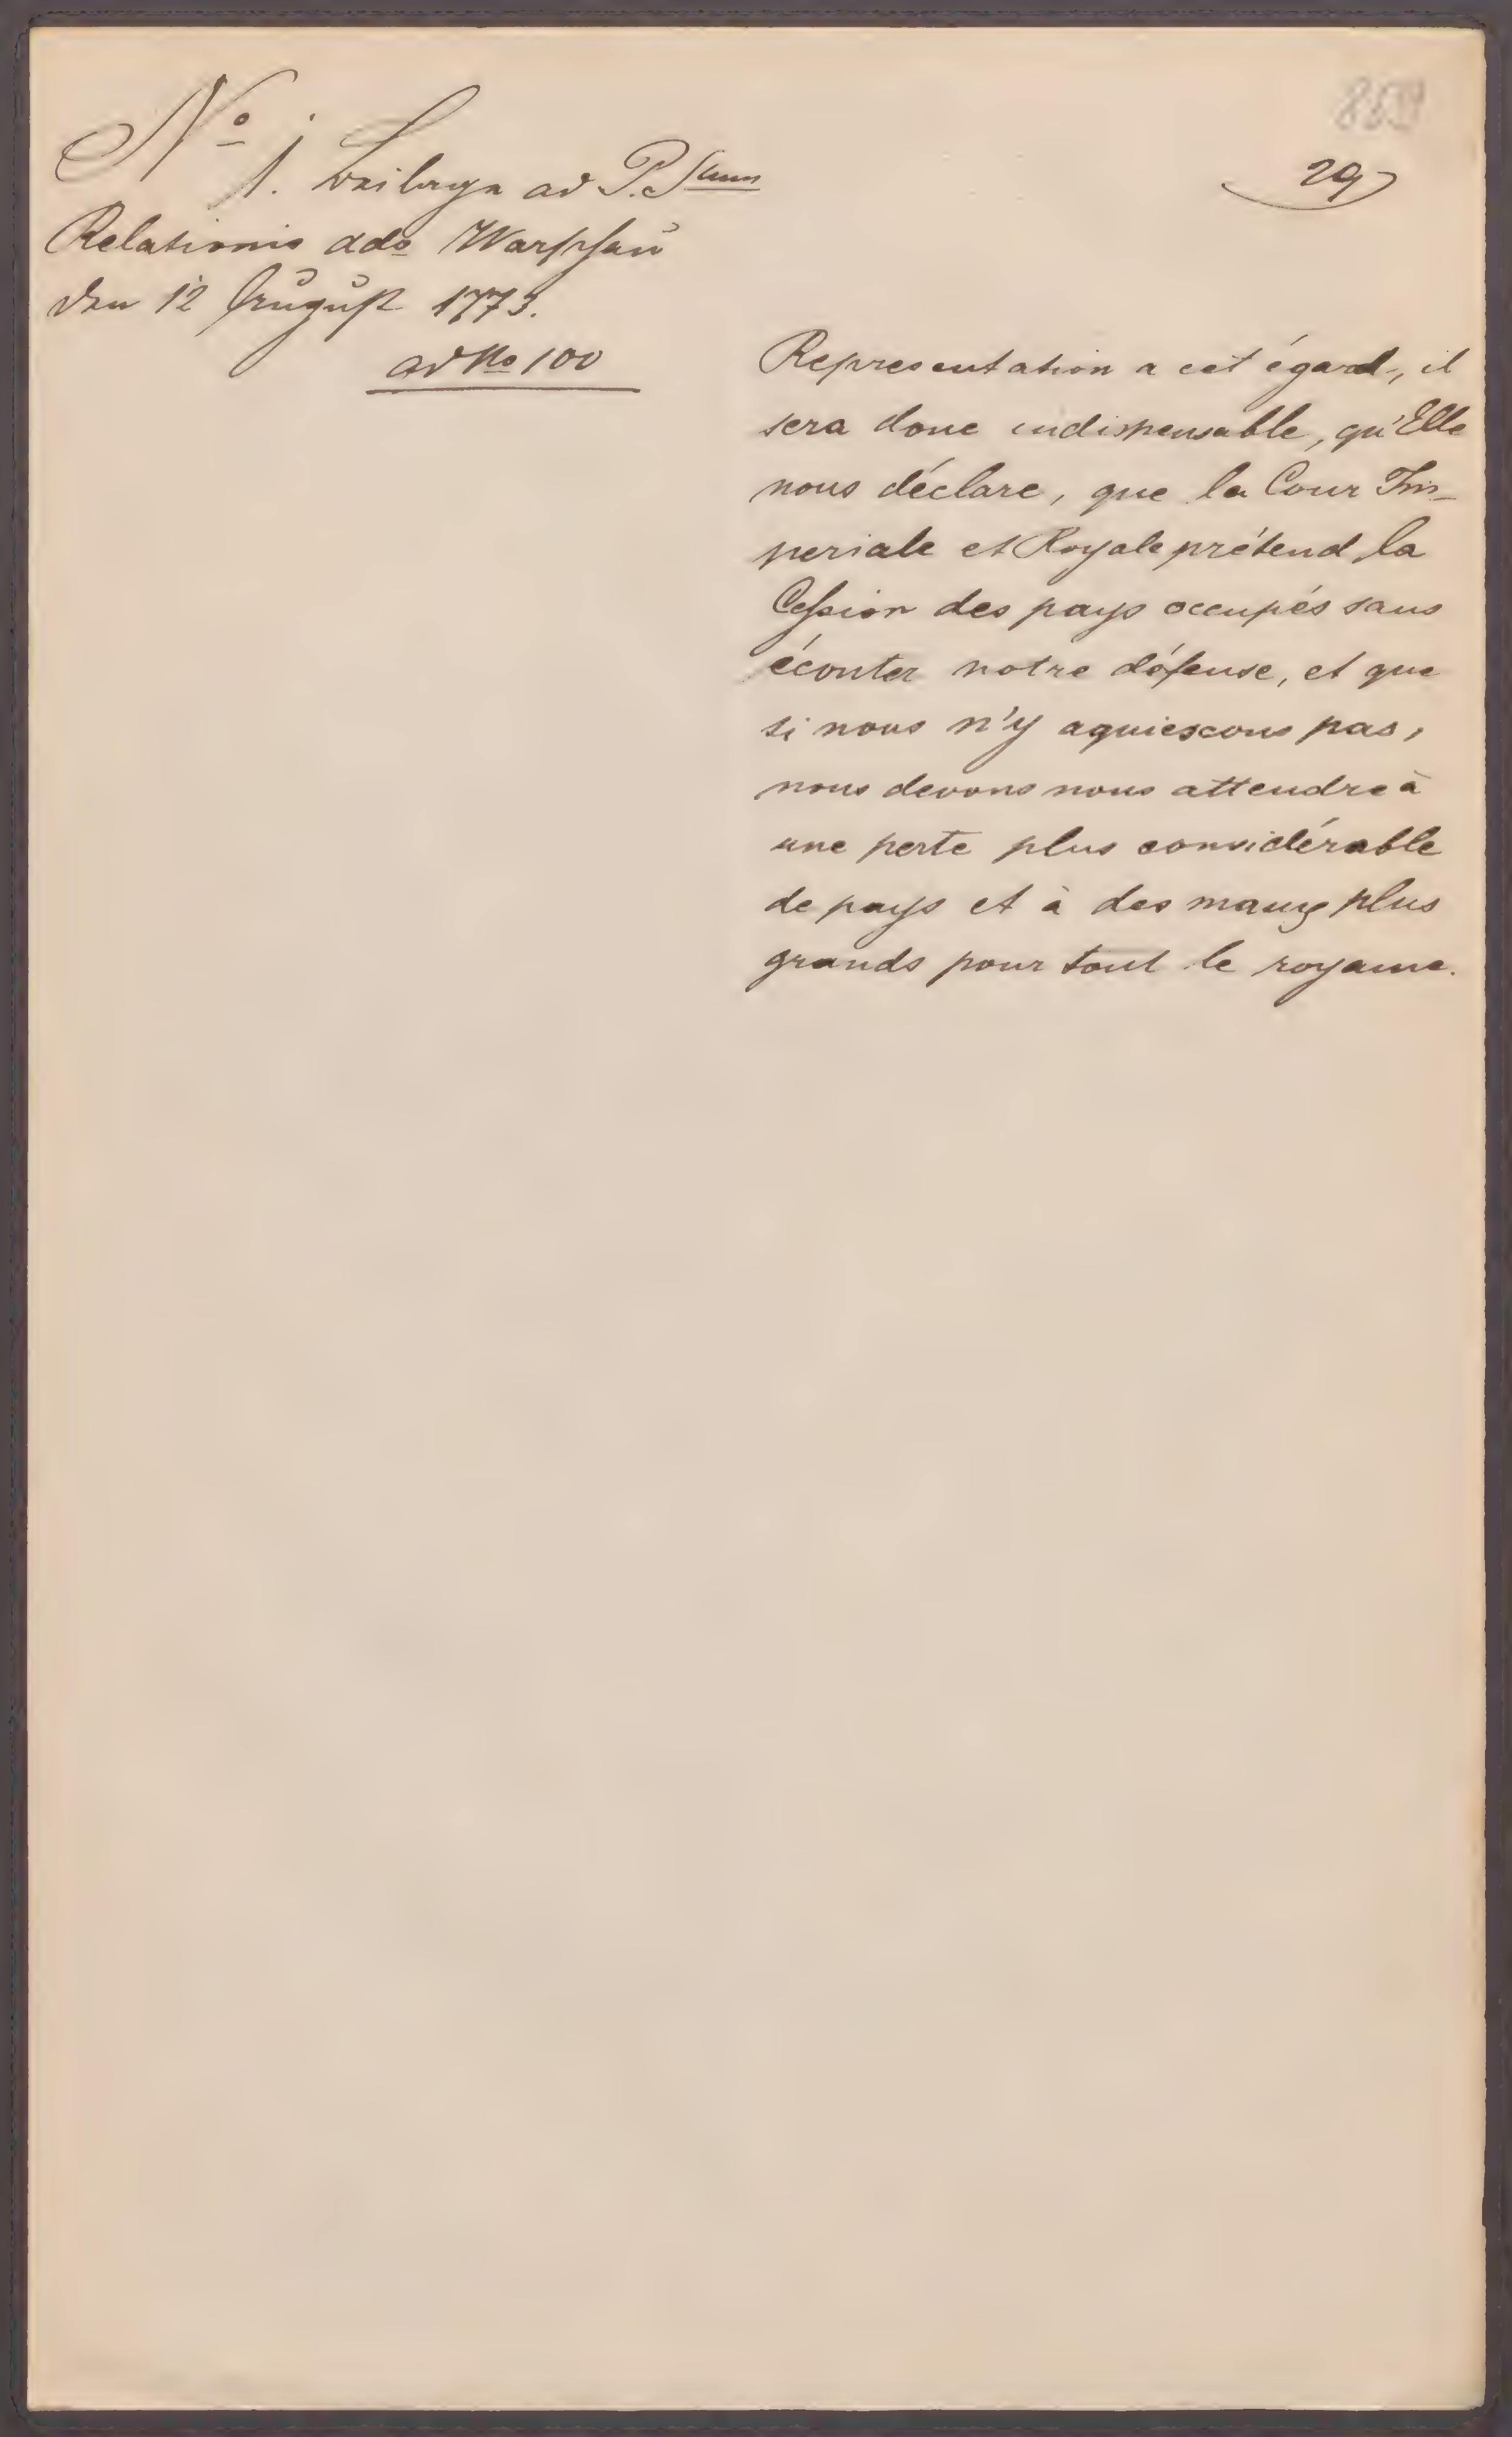 No 1. Beilage ad P. Sum
Relationis ddo Warschau
den 12 August 1773.
ad No 100
29
Representation a cet égard, il
sera donc indispensable, qu'Elle
nous déclare, que la Cour Im-
periale et Royale prétend la
Cession des pays occupés sans
écouter notre défense, et que
si nous n'y aquiescons pas,
nous devons nous attendre à
une perte plus considérable
de pays et à des maux plus
grands pour tout le royaume.